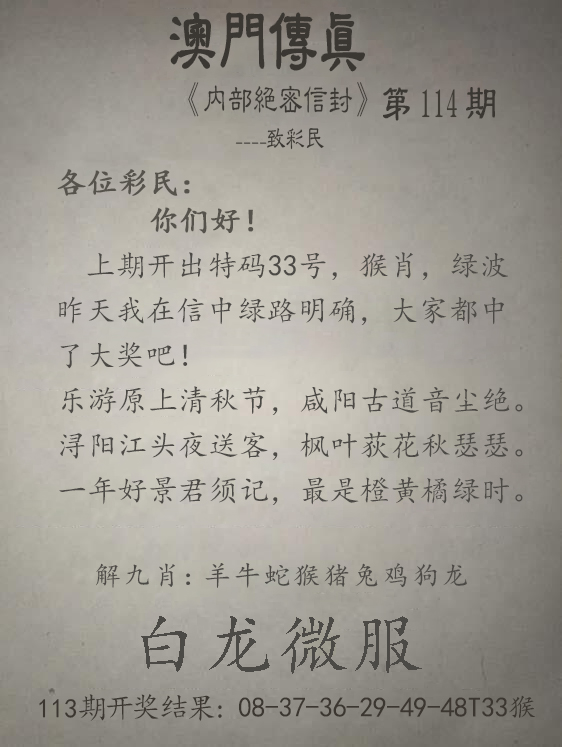 澳門傳眞
《内部絕密信封》第114期
----致彩民
各位彩民：
你们好！
上期开出特码33号，猴肖，绿波
昨天我在信中绿路明确，大家都中
了大奖吧！
乐游原上清秋节，咸阳古道音尘绝。
浔阳江头夜送客，枫叶荻花秋瑟瑟。
一年好景君须记，最是橙黄橘绿时。
解九肖：羊牛蛇猴猪兔鸡狗龙
白龙微服
113期开奖结果：08-37-36-29-49-48T33猴